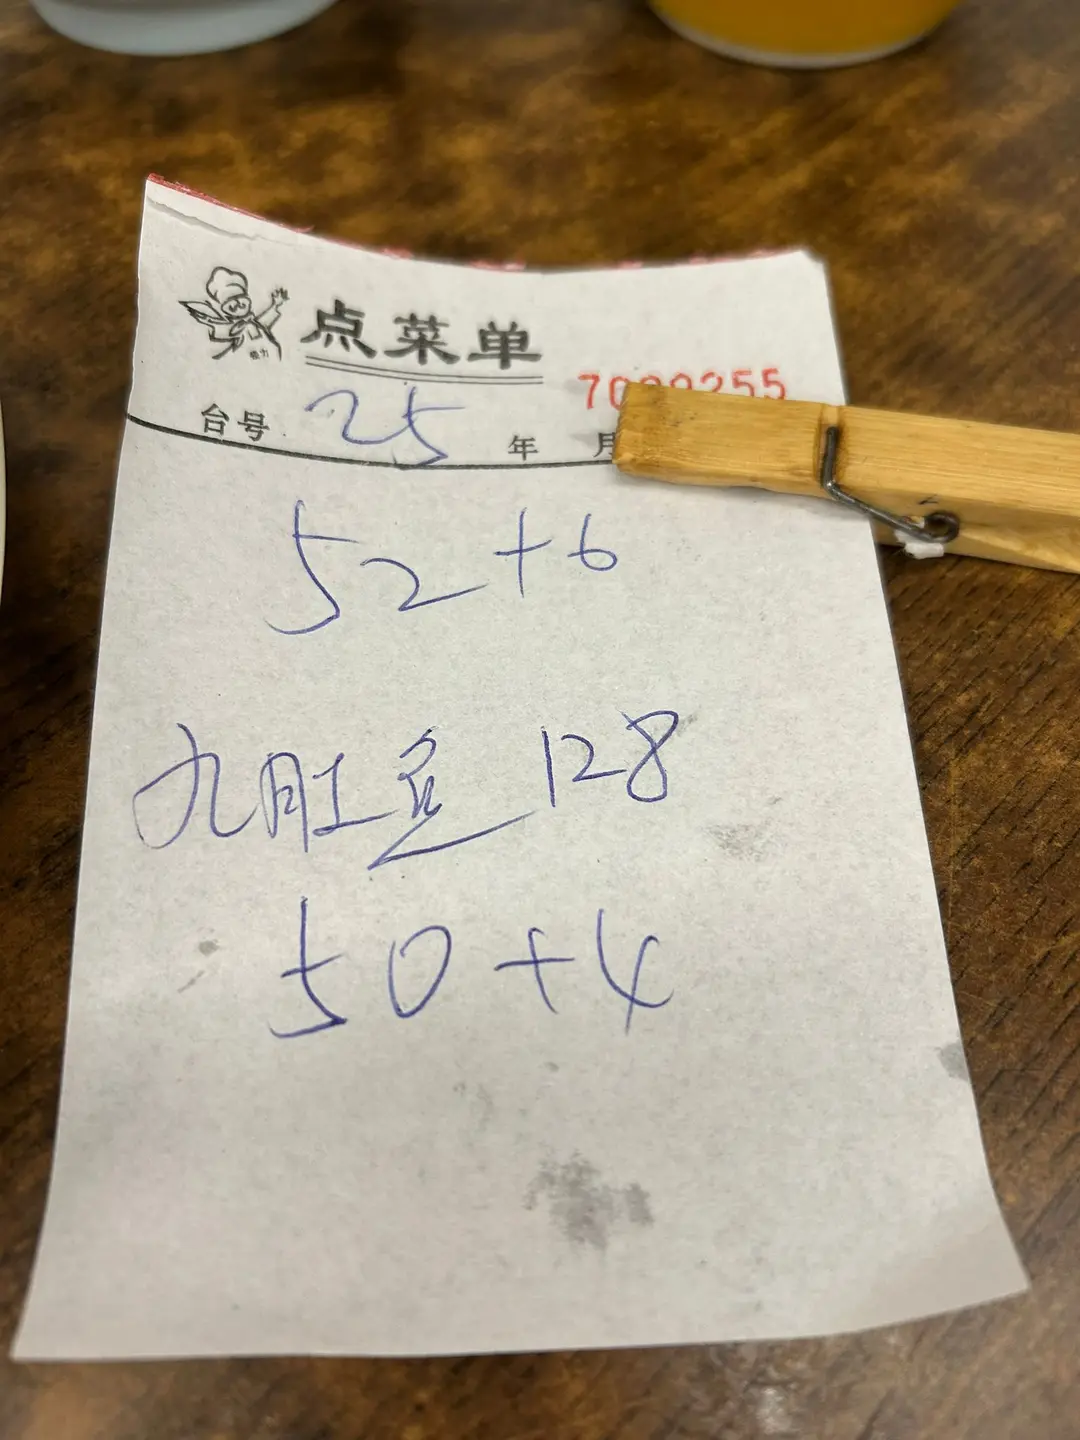 点菜单
台号 25 年 月
52+6
九肚鱼 128
50+4